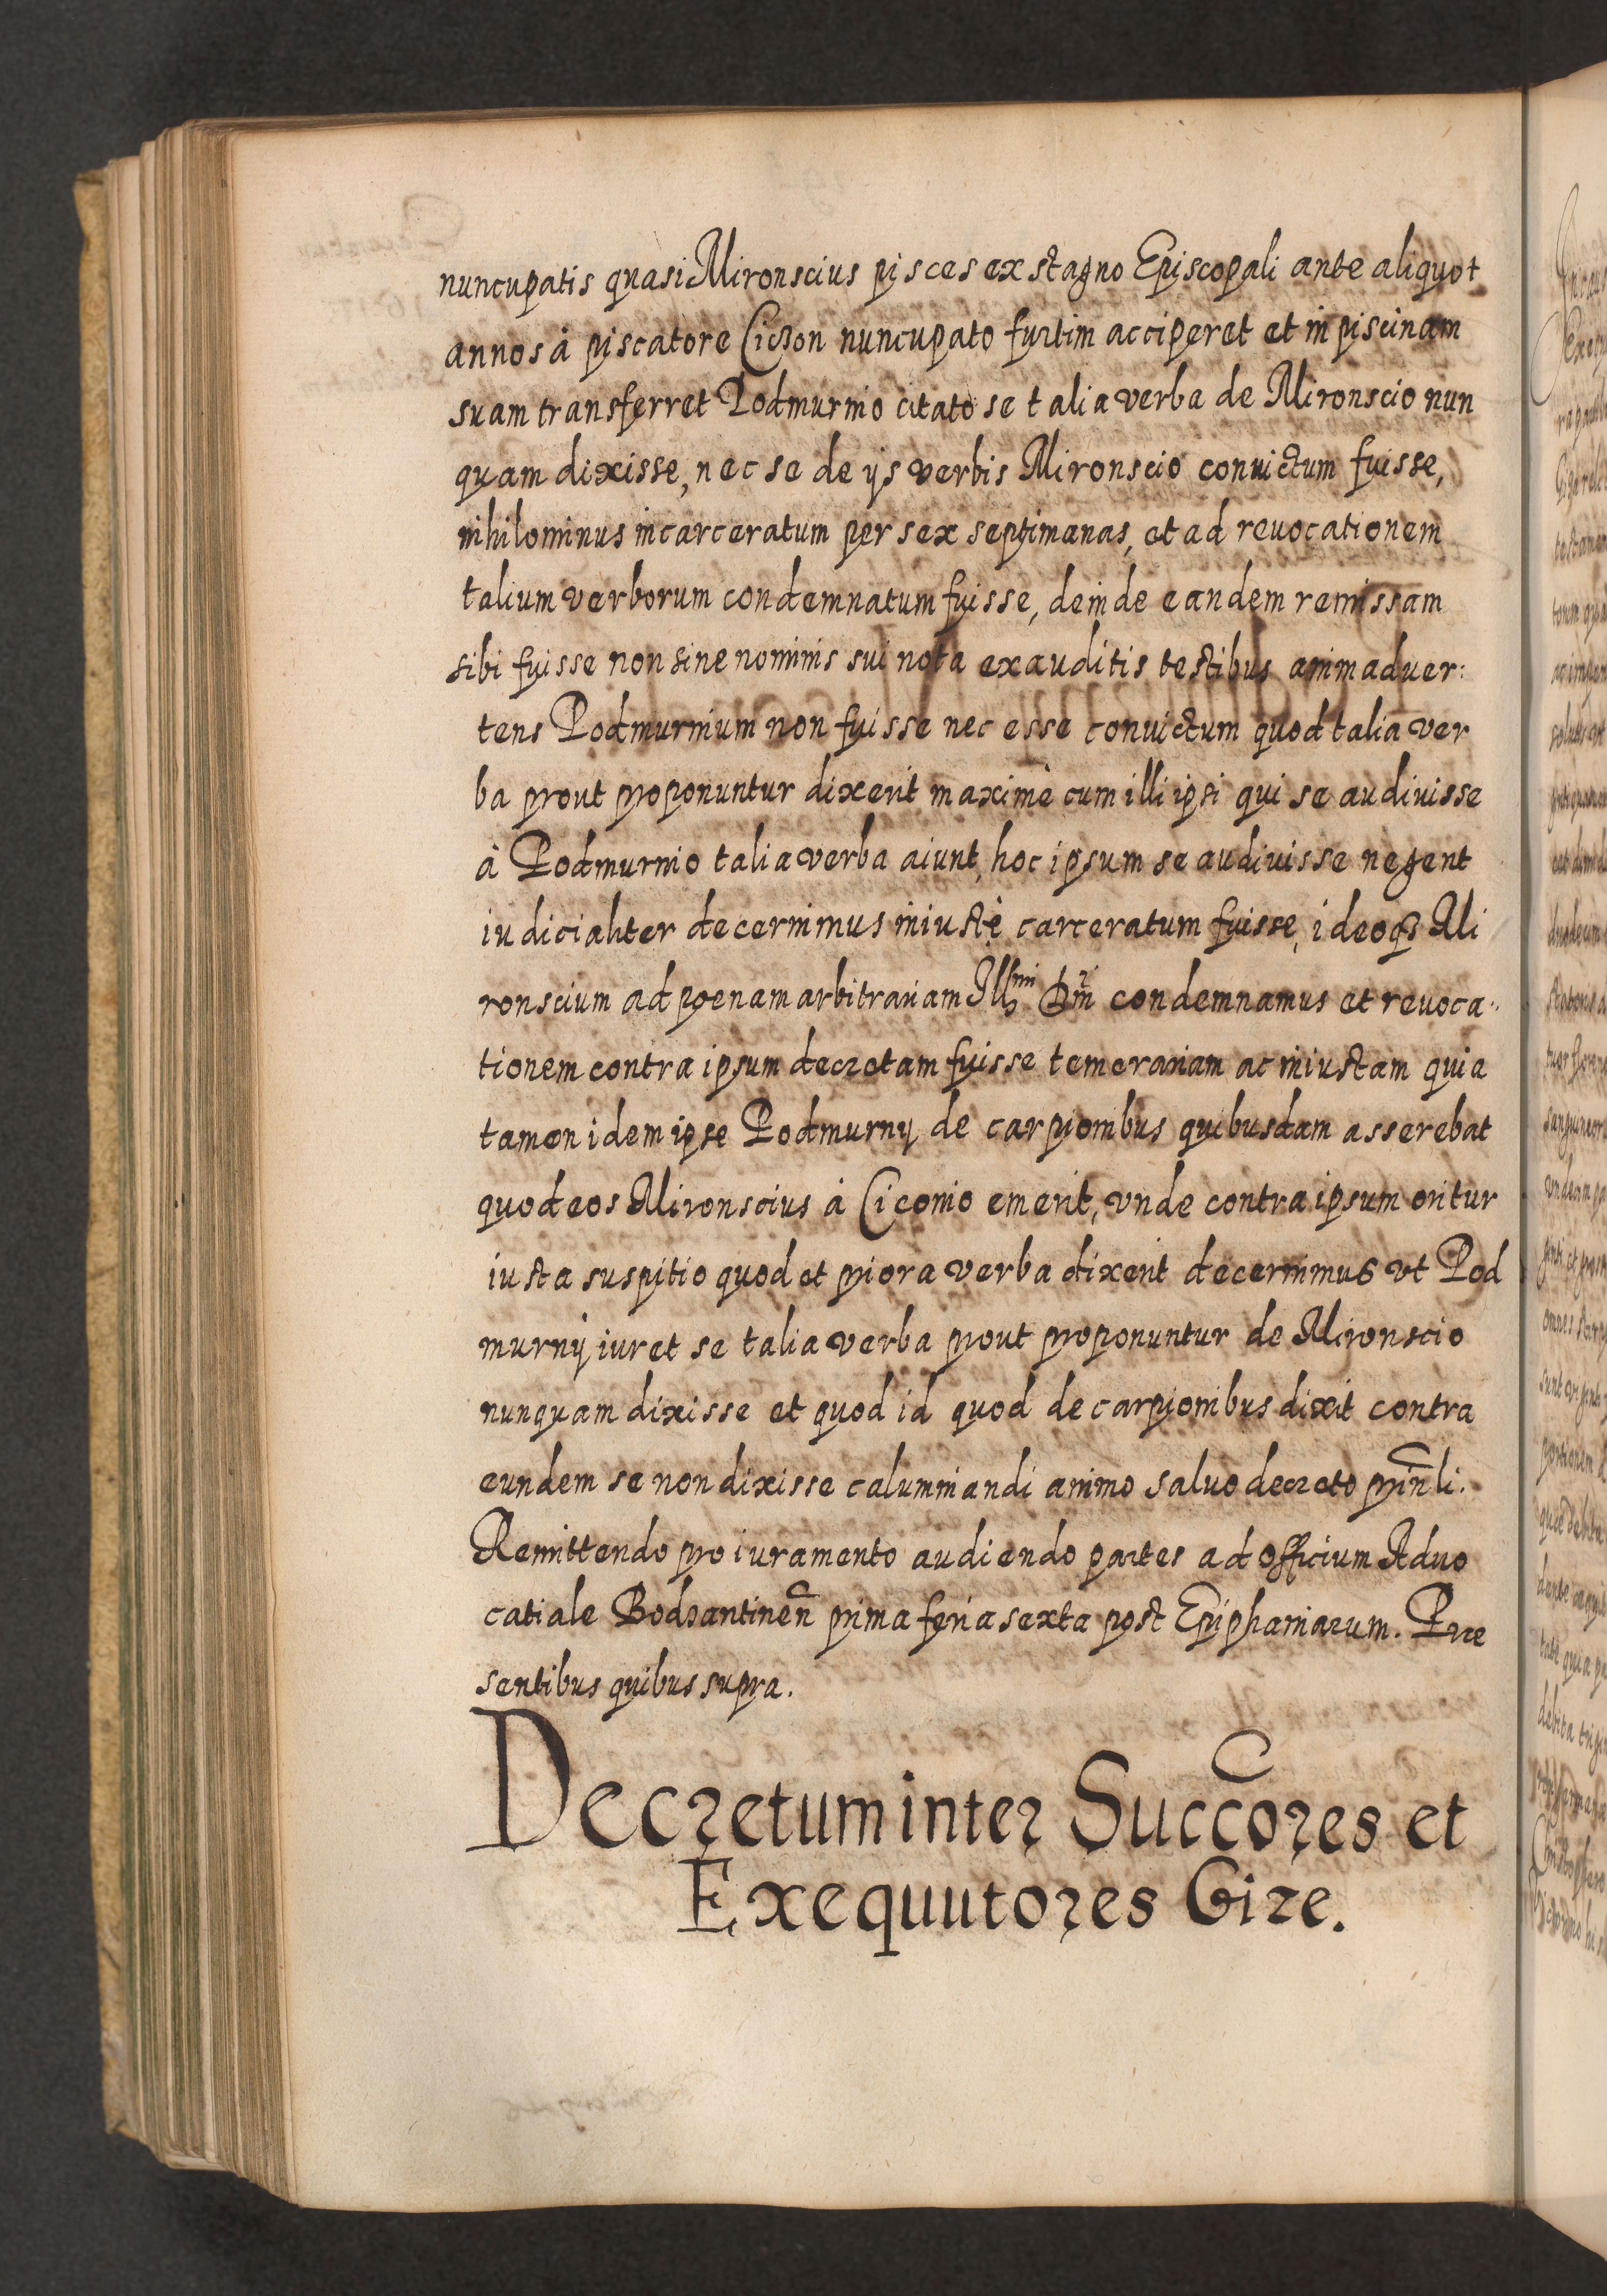 nuncupatis quasi Mironscius pisces ex stagno Episcopali ante aliquot
annos à piscatore Cichon nuncupato furtim acciperet et in piscinam
suam transferret Podmurnio citato se talia verba de Mironscio nun
quam dixisse, nec se de ijs verbis Mironscio conuictum fuisse,
nihilominus incarceratum per sex septimanas, et ad reuocationem
talium verborum condemnatum fuisse, deinde eandem remissam
sibi fuisse non sine nominis sui nota exauditis testibus animaduer:
tens Podmurnium non fuisse nec esse conuictum quod talia ver
ba prout proponuntur dixerit maximè cum illi ipsi qui se audiuisse
à Podmurnio talia verba aiunt, hoc ipsum se audiuisse negent
iudicialiter decernimus iniustè carceratum fuisse, ideoqs Mi
ronscium ad poenam arbitrariam Illmi Dni condemnamus et reuoca:
tionem contra ipsum decretam fuisse temerariam ac iniustam quia
tamen idem ipse Podmurny de carpionibus quibusdam asserebat
quod eos Mironscius à Ciconio emerit, vnde contra ipsum oritur
iusta suspitio quod et priora verba dixerit decernimus vt Pod
murnÿ iuret se talia verba prout proponuntur de Mironscio
nunquam dixisse et quod id quod de carpionibus dixit contra
eundem se non dixisse calumniandi animo saluo decreto prinli.
Remittendo pro iuramento audiendo partes ad officium Aduo
catiale Bodzantinen prima feria sexta post Epiphaniarum. Præ
sentibus quibus supra.
Decretum inter Succores et
Exequutores Gize.